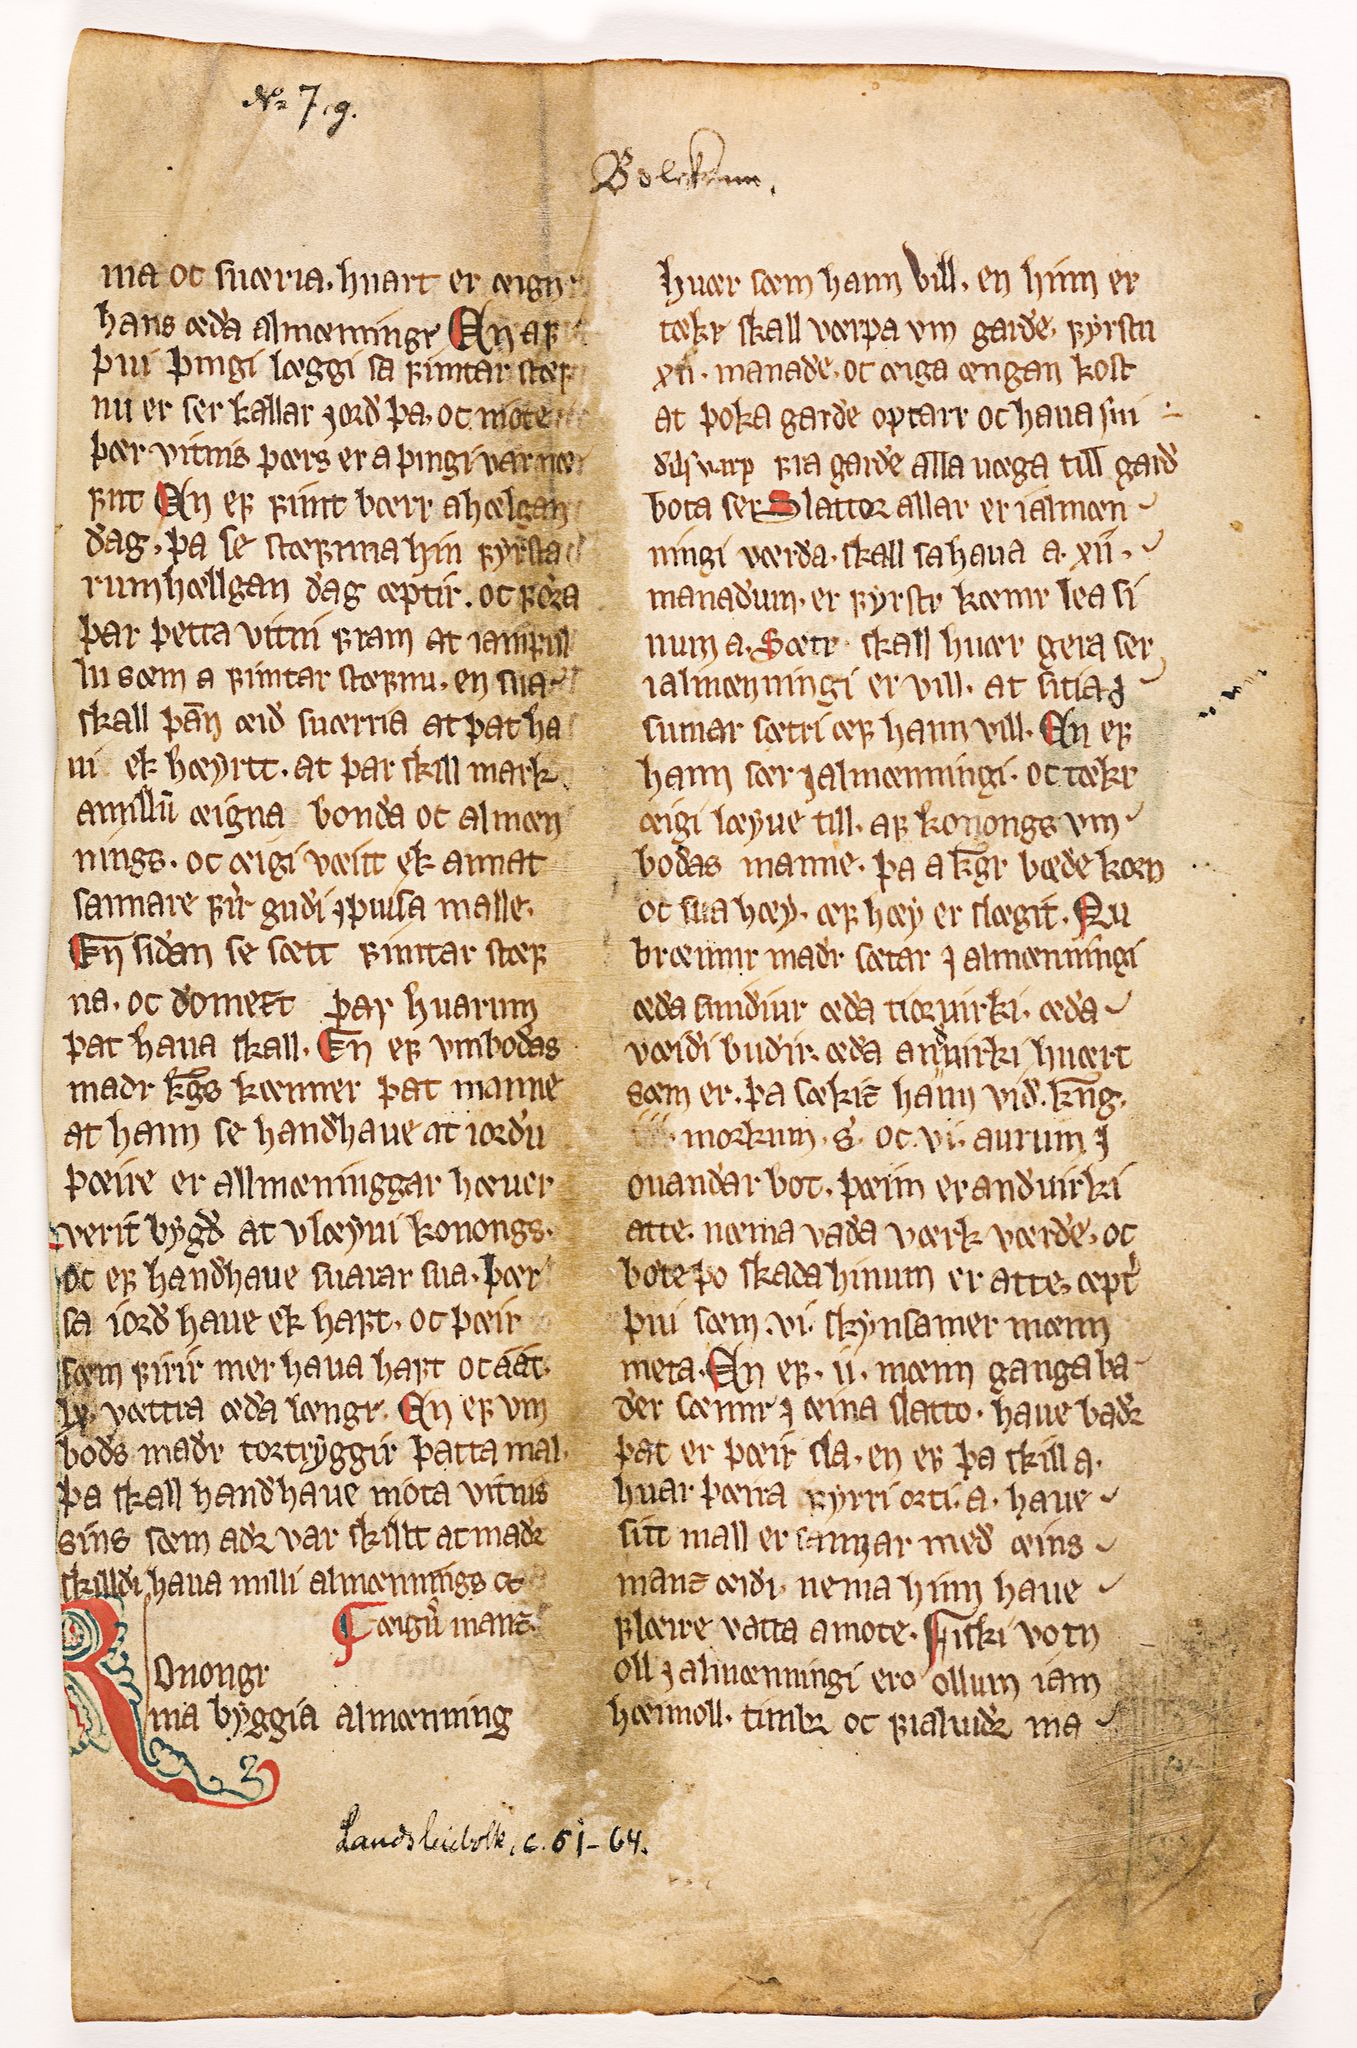 No 7, g.
Boleskium.
ma oc suæria. huart er æign
hans æda almænningr En af
þui þingi læggi sa fimtar stæf
nu er ser kallar jord þa. oc mote
þær vitnis þærs er a þingi var næ
fnt En ef fimt bærr a hælgan
dag. þa se stæfnna hin fyrsta
rumhællgan dag æptir. oc føra
þar þetta vitni fram at iamful
lu sæm a fimtar stæfnu. en sua
skall þan æid suærria at þat ha
ui ek hæyrtt. at þar skill mark
amillū æigna bonda oc almæn
nings. oc æigi væitt ek annat
sannare fir gudi j þuisa malle.
En sidan se sætt fimtar stæf
na. oc domett þar huarum
þat haua skall. En ef vmbodas
madr kgs kænner þat manne
at hann se handhaue at iordu
þæire er allmæninggar hæuer
verit bygd at vlæyui konongs.
oc ef handhaue suarar sua. þær
sa iord haue ek haft. oc þæir
sæm firir mer haua haft oc aat.
xx. vættra æda længr. En ef vm
bods madr tortryggir þatta mal.
þa skall handhaue mota vitnis
sins sæm adr var skillt at madr
skilldi haua milli almænnings oc
æigū mant.
Konongr
ma byggia almænning
huær sæm hann vill. en hinn er
tækr skall værpa vm garde. fyrstu
xii. manade. oc æiga ængan kost
at þoka garde optarr oc haua sui
dilsvirp fra garde alla uæga till gard
bota ser Slattor allar er i almæn
ningi værda. skall sa haua a. xii.
manadum. er fyrstr kæmr lea si
num a. Sætr skall huær gera ser
i almænningi er vill. at sitia j
sumar sætri æf hann vill. En ef
hann sær j almænningi. oc tækr
æigi læyue till. af konongs vm
bodas manne. þa a kgr bæde korn
oc sua hæy. æf hæy er slægit. Nu
brænnir madr sætar j almænningi
æda smidiur æda tioruirki. æda
væidi budir æda anduirki huært
sæm er. þa sækir hann vid. kng.
iiii. morkum. s. oc. vi. aurum j
ouandar bot. þæim er anduirki
atte. næma vada værk værde. oc
bøte þo skada hinum er atte. æpt
þui sæm. vi. skynsamer mænn
meta. En ef. ii. mænn ganga ba
der sænnr j æina slatto. haue badr
þat er þæir sla. en ef þa skill a.
huar þæira fyrri orti. a. haue
sitt mall er sannar med æins
mant æidi. nema hinn haue
flæire vatta a mote. Fiski votn
oll j almænningi ero ollum iam
hæimoll. timbr oc fialuidr ma
Landsleiebolk, c. 61-64.